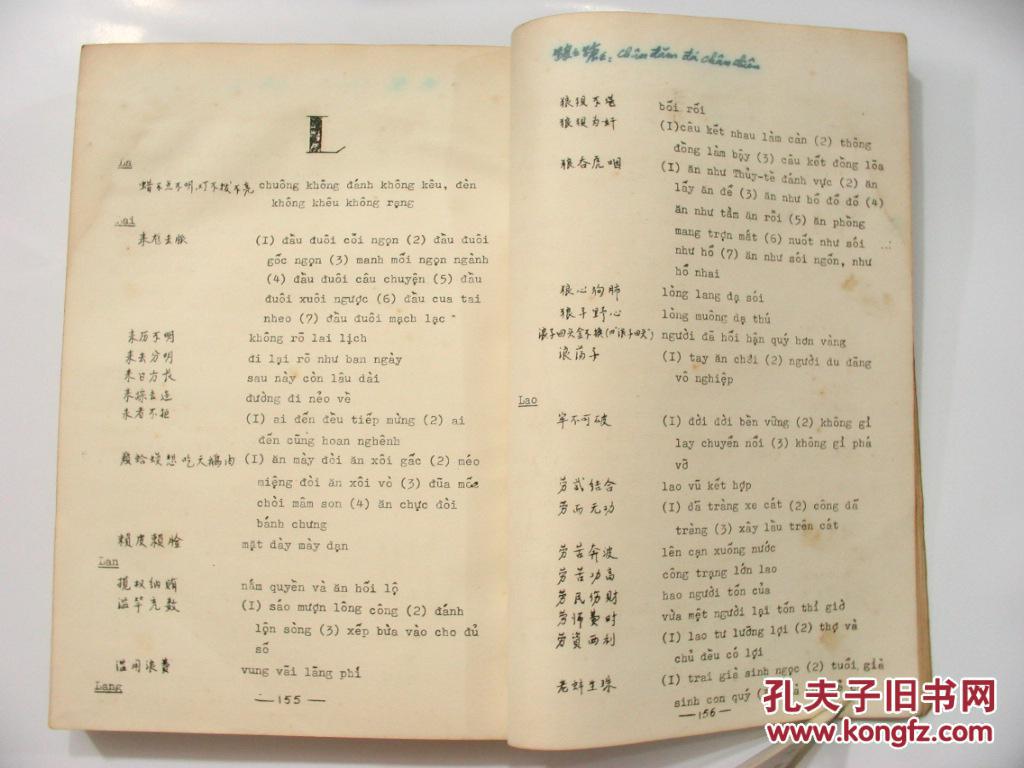 L
La
蜡不点不明,灯不拨不亮 chuông không đánh không kêu, đèn
không khêu không rạng
Lai
来龙去脉 (I) đầu đuôi cỗi ngọn (2) đầu đuôi
gốc ngọn (3) manh mối ngọn ngành
(4) đầu đuôi câu chuyện (5) đầu
đuôi xuôi ngược (6) đầu cua tai
nheo (7) đầu đuôi mạch lạc
来历不明 không rõ lai lịch
来去分明 đi lại rõ như ban ngày
来日方长 sau này còn lâu dài
来踪去迹 đường đi nẻo về
来者不拒 (I) ai đến đều tiếp mừng (2) ai
đến cũng hoan nghênh
癞蛤蟆想吃天鹅肉 (I) ăn mày đòi ăn xôi gấc (2) méo
miệng đòi ăn xôi vò (3) đũa mốc
chòi mâm son (4) ăn chực đòi
bánh chưng
赖皮赖脸 mặt dày mày dạn
Lan
揽权纳贿 nắm quyền và ăn hối lộ
滥竽充数 (I) sáo mượn lông công (2) đánh
lộn sòng (3) xếp bừa vào cho đủ
số
滥用浪费 vung vãi lãng phí
Lang
—155—
chân đăm đá chân chiêu
狼狈不堪 bối rối
狼狈为奸 (I)câu kết nhau làm càn (2) thông
đồng làm bậy (3) câu kết đồng lõa
狼吞虎咽 (I) ăn như Thủy-tề đánh vực (2) ăn
lấy ăn để (3) ăn như bổ đổ đổ (4)
ăn như tằm ăn rỗi (5) ăn phồng
mang trợn mắt (6) nuốt như sói
như hổ (7) ăn như sói ngốn, như
hổ nhai
狼心狗肺 lòng lang dạ sói
狼子野心 lòng muông dạ thú
浪子回头金不换 người đã hối hận quý hơn vàng
浪荡子 (I) tay ăn chơi (2) người du đãng
vô nghiệp
Lao
牢不可破 (I) đời đời bền vững (2) không gì
lay chuyển nổi (3) không gì phá
vỡ
劳武结合 lao vũ kết hợp
劳而无功 (I) dã tràng xe cát (2) công dã
tràng (3) xây lầu trên cát
劳苦奔波 lên cạn xuống nước
劳苦功高 công trạng lớn lao
劳民伤财 hao người tốn của
劳师费时 vừa mệt người lại tốn thì giờ
劳资两利 (I) lao tư lưỡng lợi (2) thợ và
chủ đều có lợi
老蚌生珠 (I) trai già sinh ngọc (2) tuổi già
sinh con quý
—156—
孔夫子旧书网
www.kongfz.com